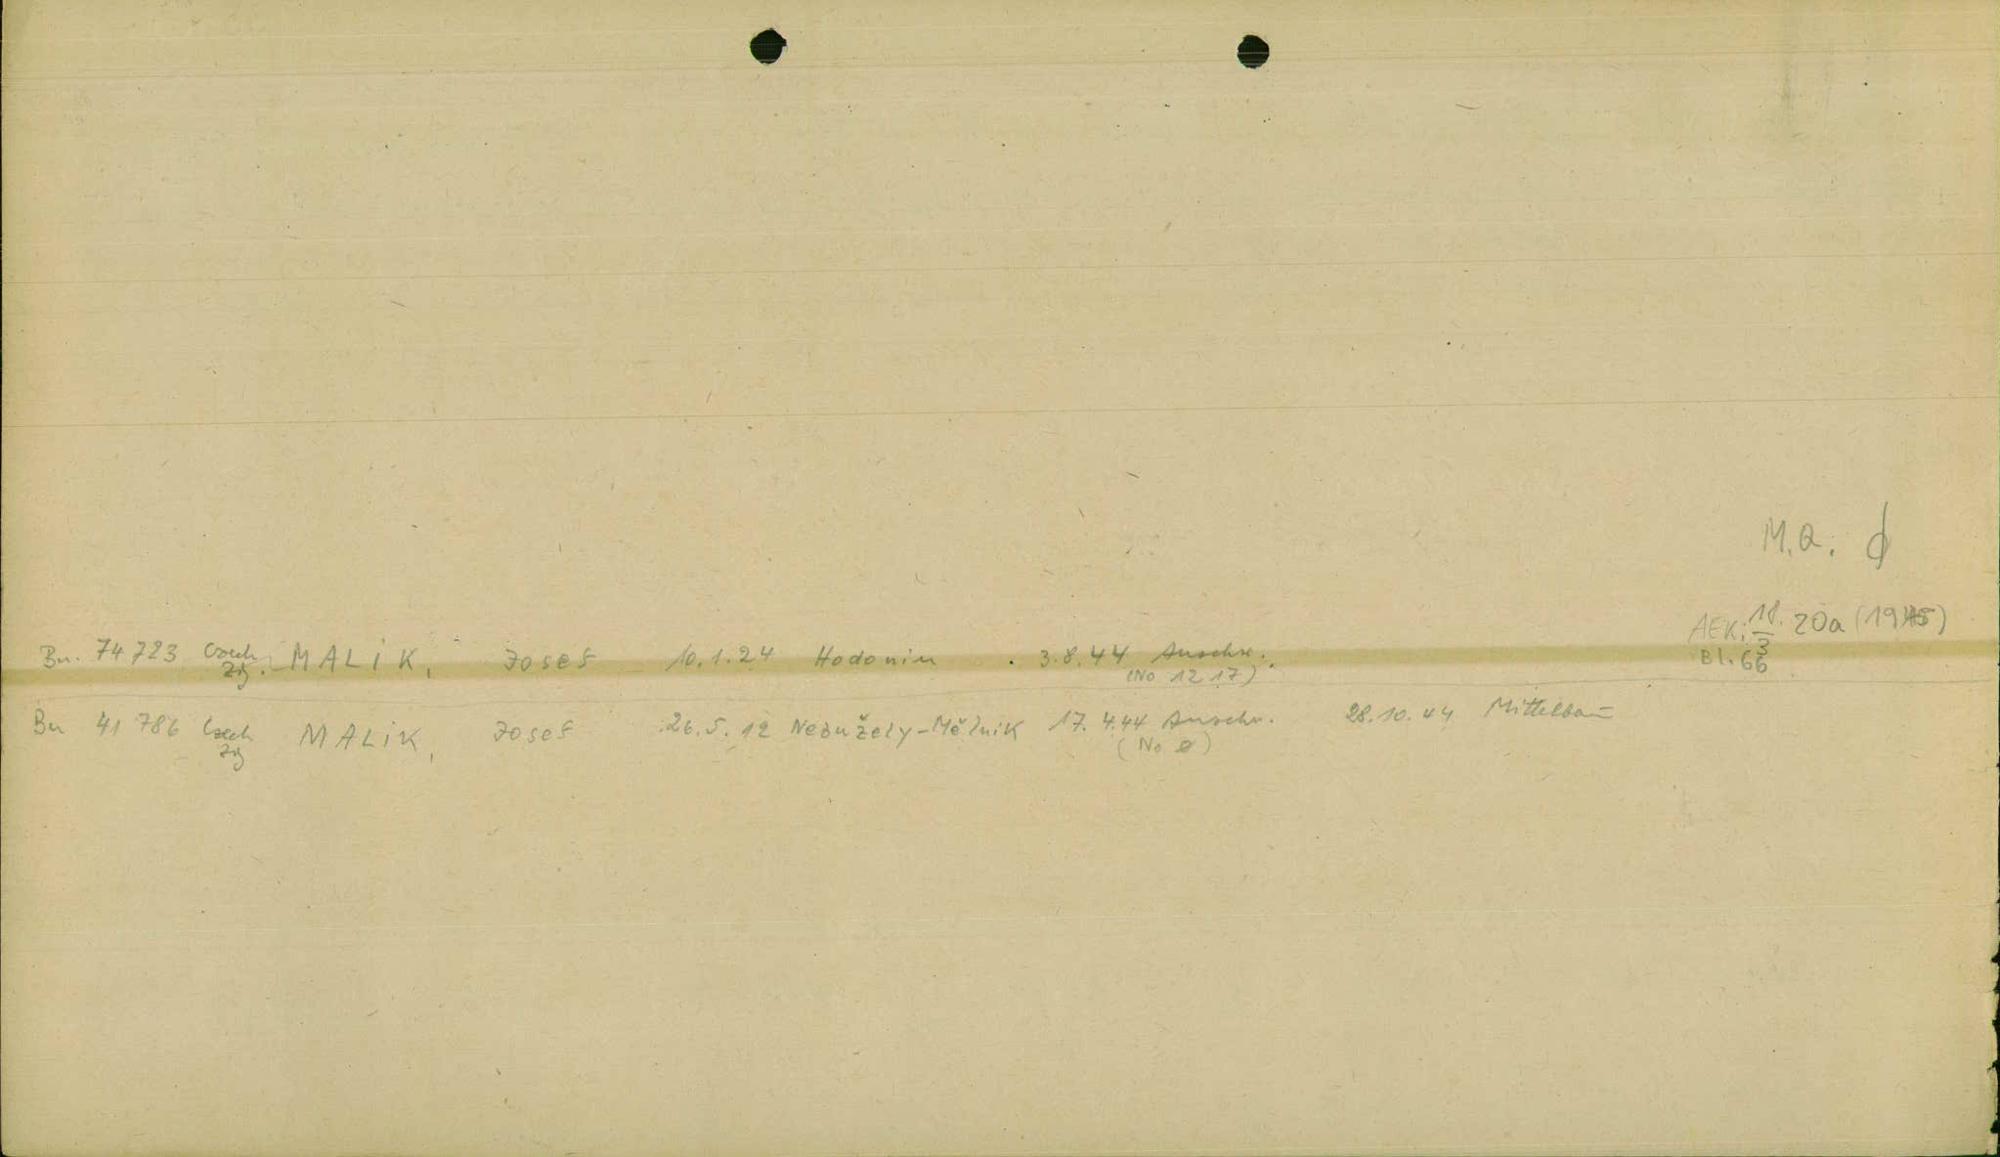 M.Q.
AEK: 18/3 20a (1945)
Bl. 66
Bu. 74 723 Czech Zig. MALIK, Josef 10.1.24 Hodonin . 3.8.44 Auschw.
(No 12 17)
Bu 41 786 Czech Zig MALIK, Josef 26.5.12 Nebužely-Mělnik 17.4.44 Auschw. 28.10.44 Mittelbau
(No 0)